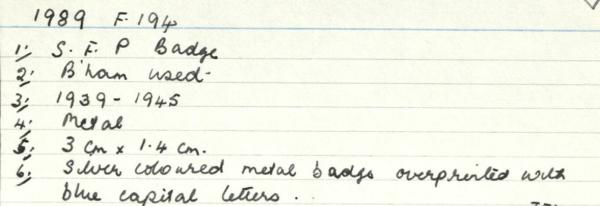 1989 F.194
1: S. F. P Badge
2: B'ham used-
3: 1939-1945
4: Metal
5: 3 cm x 1.4 cm.
6: Silver coloured metal badge overprinted with
blue capital letters.